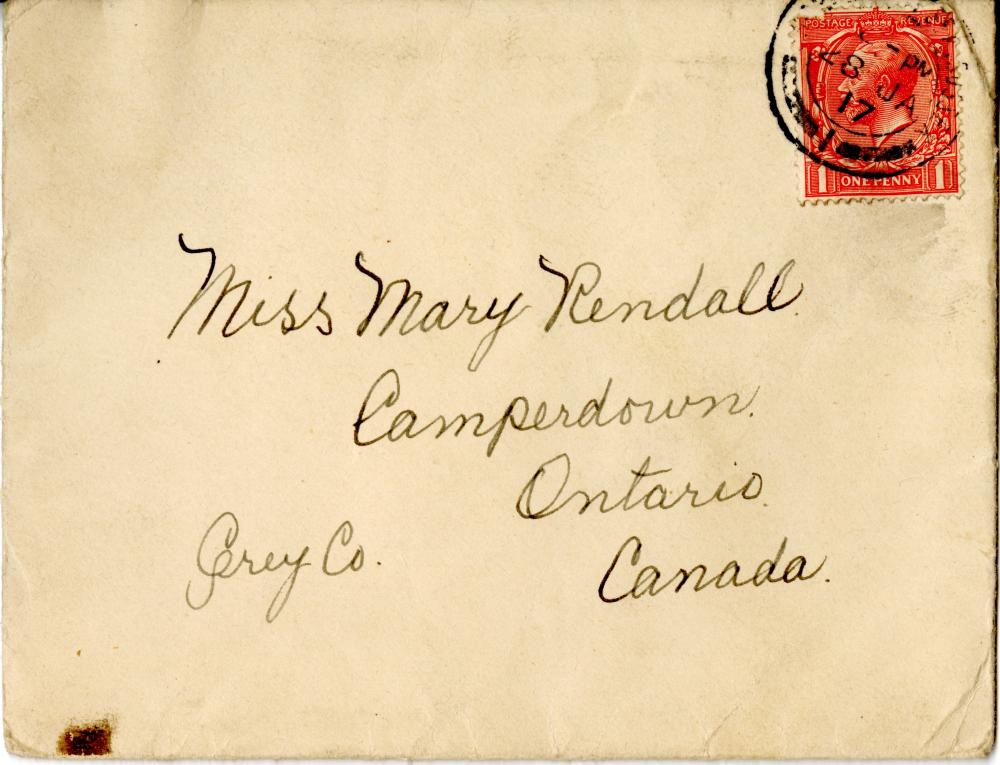 POSTAGE REVENUE
PM
8 JA
17
1 ONE PENNY 1
Miss Mary Kendall.
Camperdown.
Ontario.
Grey Co.
Canada.